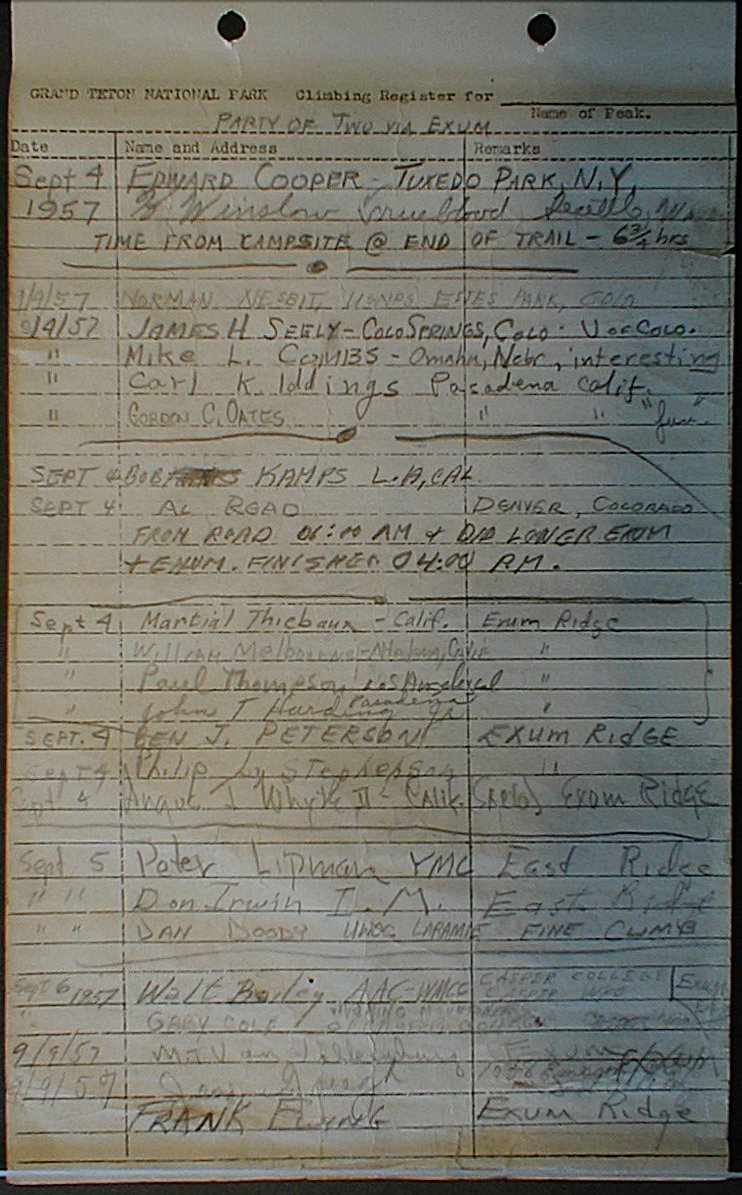 GRAND TETON NATIONAL PARK Climbing Register for
Name of Peak.
PARTY OF TWO VIA EXUM
Date Name and Address Remarks
Sept 4 EDWARD COOPER - TUXEDO PARK, N.Y.
1957 Winslow Trueblood Seattle, Wash
TIME FROM CAMPSITE @ END OF TRAIL - 6 3/4 hrs
9/4/57 NORMAN NESBIT, USNPS ESTES PARK, COLO
9/4/57 JAMES H SEELY - COLO SPRINGS, COLO - U OF COLO.
" Mike L. COMBS - Omaha, Nebr, interesting
" Carl K Iddings Pasadena Calif.
" GORDON C. OATES " " "fun"
SEPT 4 BOB KAMPS L.A, CAL
SEPT 4 AL READ DENVER, COLORADO
FROM ROAD 06:00 AM + DID LOWER EXUM
+ EXUM. FINISHED 04:00 PM.
Sept 4 Martial Thiebaux - Calif. Exum Ridge
" William "
" Paul Thompson Los Angeles Cal "
" John T Harding Jr Pasadena "
SEPT. 4 BEN J. PETERSON EXUM RIDGE
SEPT 4 Philip Stephenson "
Sept 4 Angus J Whyte II - Calif. Exum Ridge
Sept 5 Peter Lipman YMC East Ridge
" " Don Irwin I.M. East Ridge
" " DAN DOODY UWOC LARAMIE FINE CLIMB
Sept 6 1957 Walt Bailey AAC-WMCC CASPER COLLEGE EXUM
" GARY COLE
9/9/57
9/9/57
FRANK EWING Exum Ridge